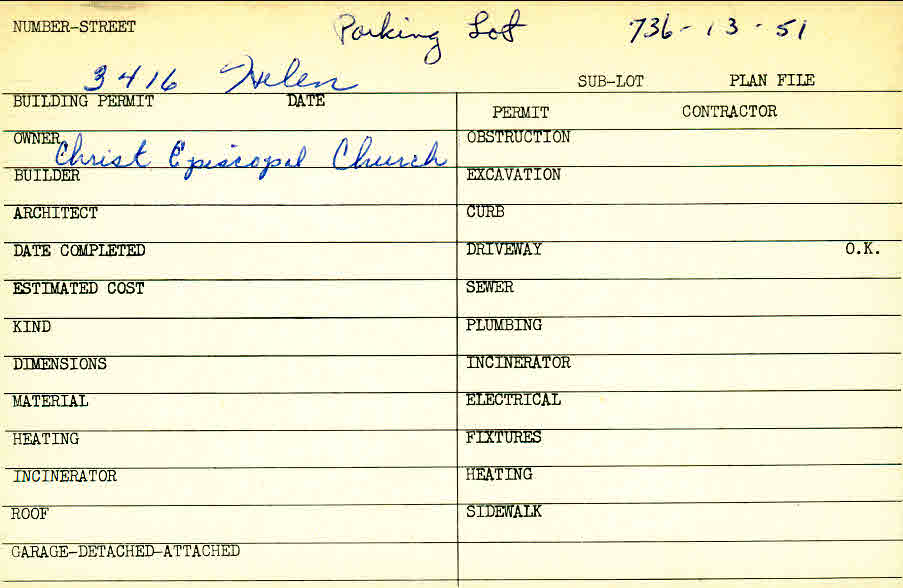 NUMBER-STREET Parking Lot 736-13-51
3416 Helen SUB-LOT PLAN FILE
BUILDING PERMIT DATE PERMIT CONTRACTOR
OWNER Christ Episcopal Church OBSTRUCTION
BUILDER EXCAVATION
ARCHITECT CURB
DATE COMPLETED DRIVEWAY O.K.
ESTIMATED COST SEWER
KIND PLUMBING
DIMENSIONS INCINERATOR
MATERIAL ELECTRICAL
HEATING FIXTURES
INCINERATOR HEATING
ROOF SIDEWALK
GARAGE-DETACHED-ATTACHED